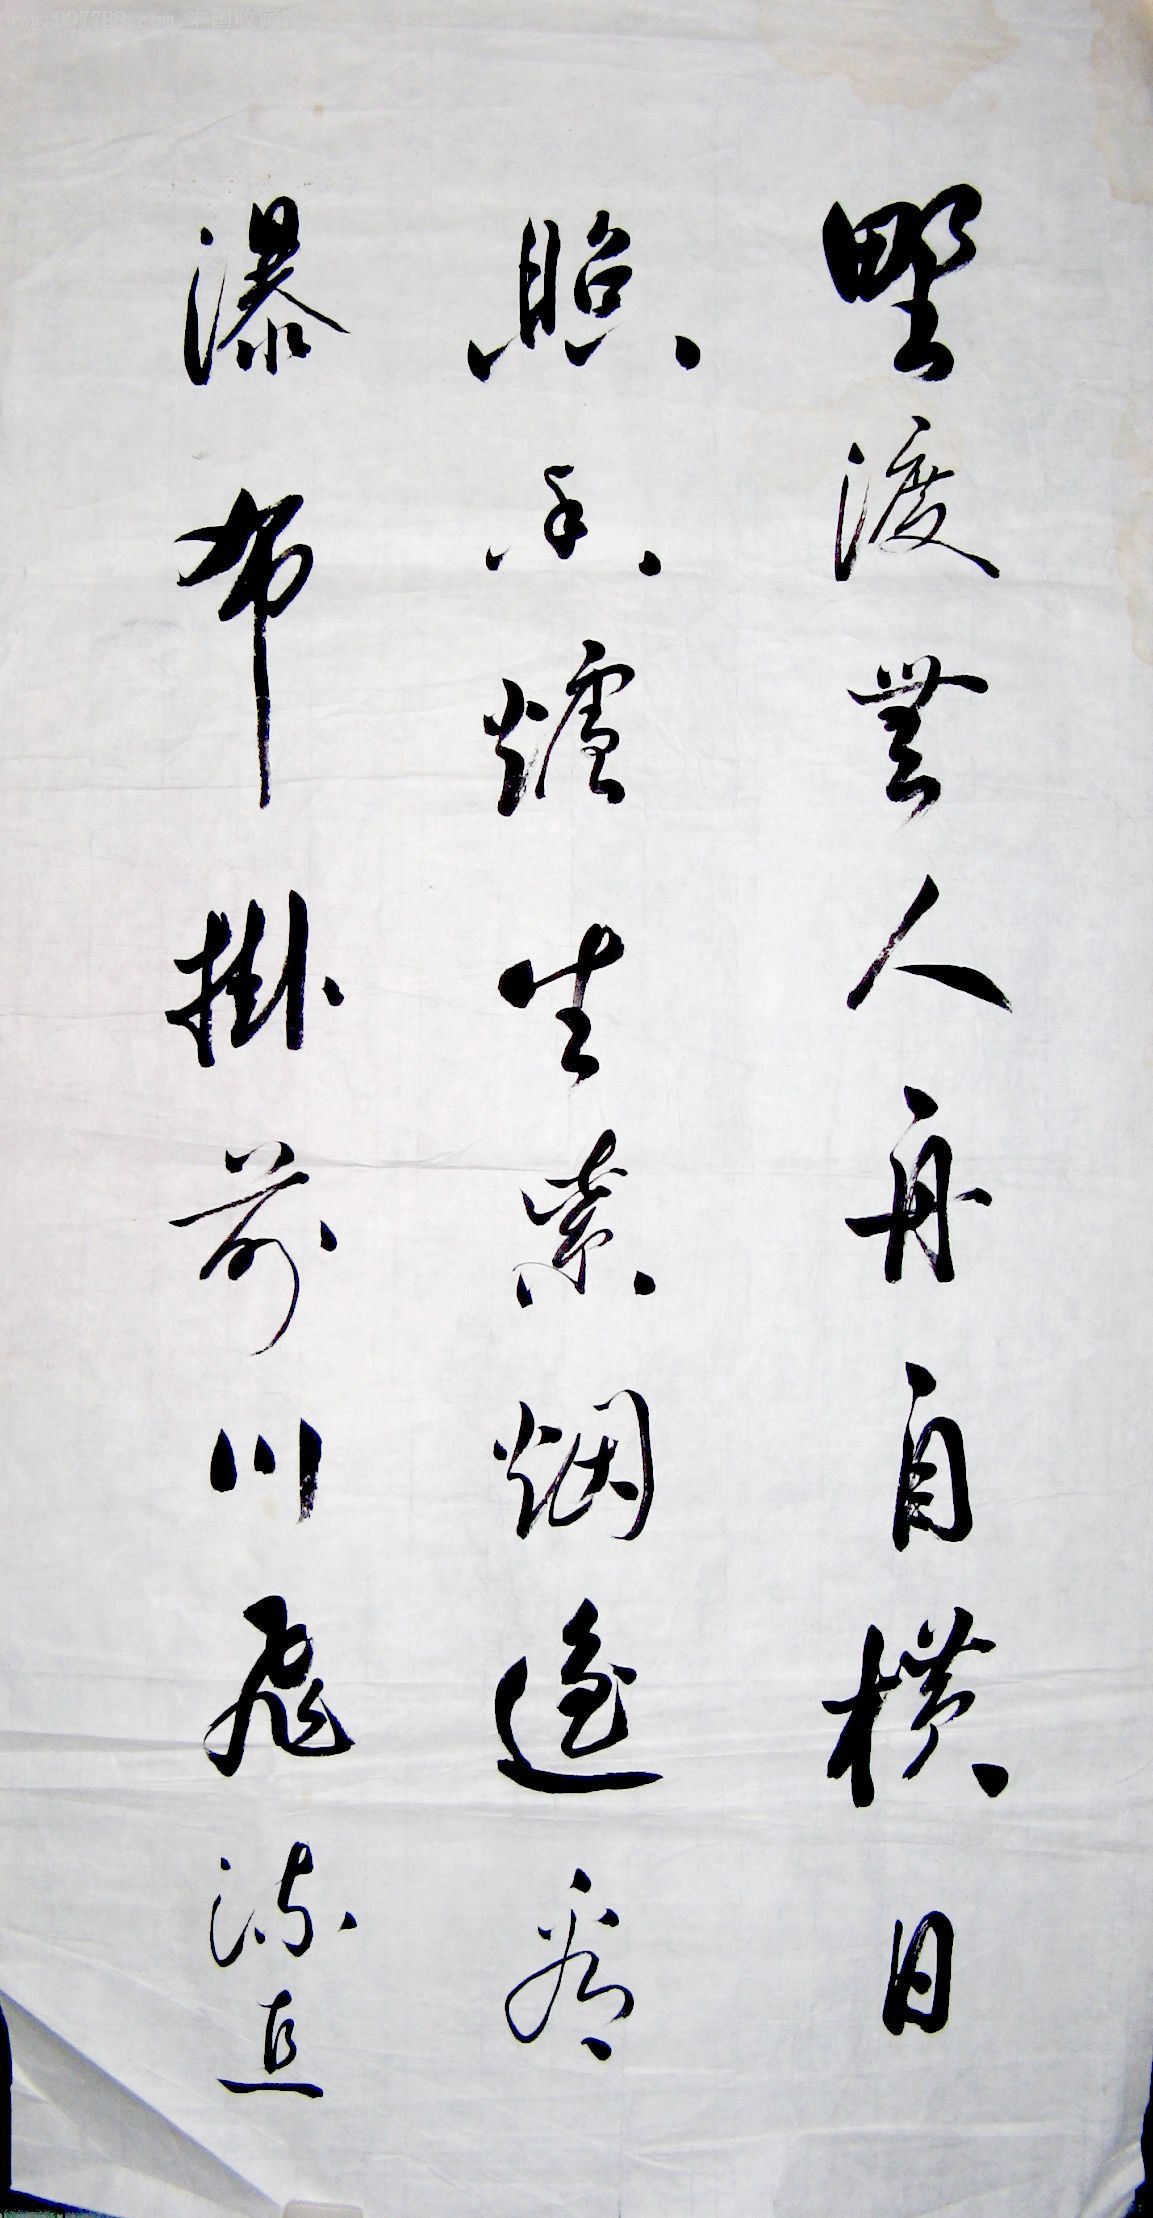 野渡無人舟自横日
照香爐生紫烟遥看
瀑布掛前川飛流直
www.997788.com 中国收藏